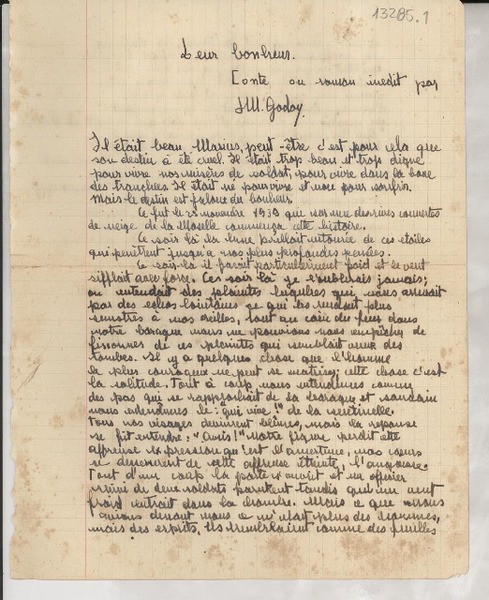 13285.1
Leur bonheur.
Conte ou roman inédit par
J.M. Godoy.
Il était beau Marius, peut-être c'est pour cela que
son destin à été cruel. Il était trop beau et trop digne
pour vivre nos misères de soldat, pour vivre dans la boue
des tranchées. Il était né pour vivre et non pour souffrir.
Mais le destin est jaloux du bonheur.
Ce fut le novembre 1939 que sur une des rives couvertes
de neige de la Moselle commença cette histoire.
Ce soir là la lune brillait entourée de ces étoiles
qui penétrent jusqu'à nos plus profondes pensées.
Ce soir-là il faisait particulièrement froid et le vent
sifflait avec force. Ces soir là je n'oublierais jamais;
on entendait des plaintes lugubres qui nous arrivait
par des echos lointains ce qui les rendait plus
sinistres à nos oreilles, tout au coin du feu dans
notre baraque nous ne pouvions nous empêcher de
frissonner de ces plaintes qui semblait venir des
tombes. Il y a quelque chose que l'homme
le plus courageux ne peut se maîtriser; cette chose c'est
la solitude. Tout à coup nous entendimes comme
des pas qui se rapprochait de la baraque et soudain
nous entendimes le: "qui vive!" de la sentinelle.
Tous nos visages devinrent blêmes, mais la reponse
se fit entendre: "Amis!" Notre figure perdit cette
affreuse expression qu'est l'amertume, nos cœurs
se desserrèrent de cette affreuse étreinte, l'angoisse.
Tout d'un coup la porte s'ouvrit et un officier
suivi de deux soldats parurent tandis qu'un vent
froid entrait dans la chambre. Mais ce que nous
avions devant nous ce n'était plus des hommes,
mais des esprits. Ils tremblaient comme des feuilles